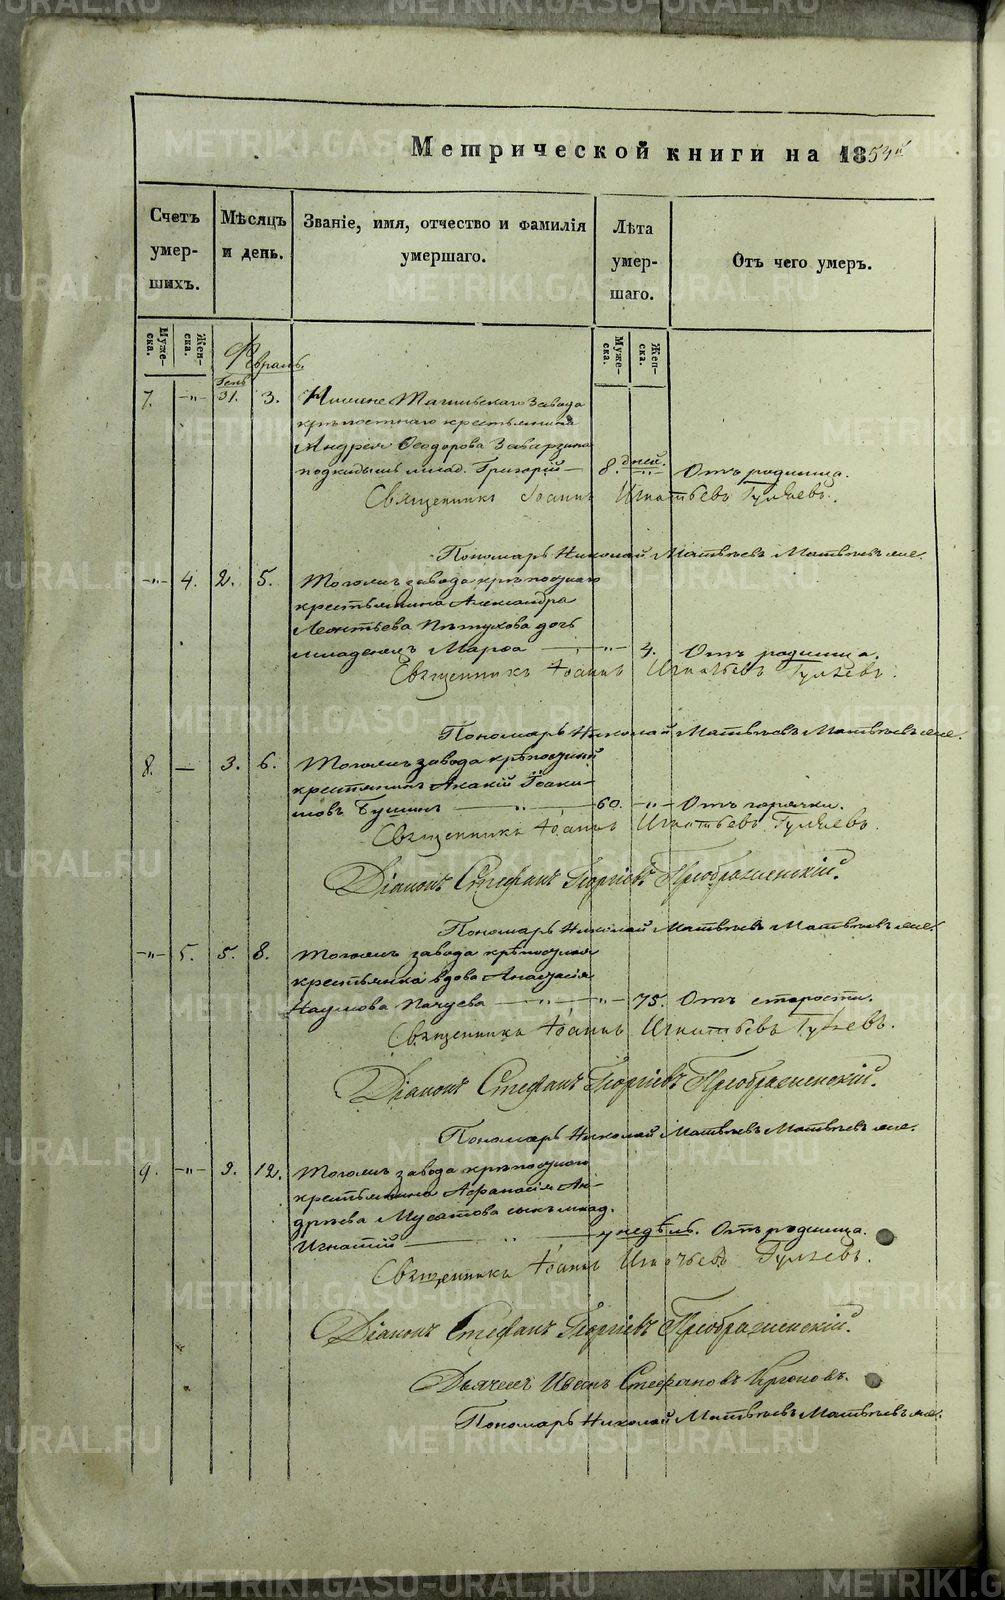 Метрической книги на 1854й
Счетъ умер-шихъ.
Мѣсяцъ и день.
Званіе, имя, отчество и фамилія умершаго.
Лѣта умер-шаго.
Отъ чего умеръ.
Муже-ска.
Жен-ска.
Муже-ска.
Жен-ска.
Февраль.
Генв.
7. —„— 31. 3. Нижне Тагильскаго Завода
крѣпостнаго крестьянина
Андрея Ѳеодорова Заварзина
подкидышъ млад. Григорій — 8. дней. —„— Отъ родимца.
Священникъ Іоаннъ Игнатьевъ Гуляевъ.
Пономарь Николай Матвѣевъ Матвѣевъ
—„— 4. 2. 5. Тогожъ завода крѣпостнаго
крестьянина Александра
Леонтьева Пѣтухова дочь
младенецъ Марѳа — —„— 4. Отъ родимца.
Священникъ Іоаннъ Игнатьевъ Гуляевъ.
Пономарь Николай Матвѣевъ Матвѣевъ
8. — 3. 6. Тогожъ завода крѣпостный
крестьянинъ Акакій Іоаки-
мовъ Бушинъ —„— 60. —„— Отъ горячки.
Священникъ Іоаннъ Игнатьевъ Гуляевъ.
Діаконъ Стефанъ Георгіевъ Преображенскій.
Пономарь Николай Матвѣевъ Матвѣевъ
—„— 5. 5. 8. Тогожъ завода крѣпостная
крестьянка вдова Анастасія
Наумова —„— —„— 75. Отъ старости.
Священникъ Іоаннъ Игнатьевъ Гуляевъ.
Діаконъ Стефанъ Георгіевъ Преображенскій.
Пономарь Николай Матвѣевъ Матвѣевъ
9. —„— 9. 12. Тогожъ завода крѣпостнаго
крестьянина Аѳанасія Ан-
дрѣева Мусатова сынъ млад.
Игнатій —„— недѣль. Отъ родимца.
Священникъ Іоаннъ Игнатьевъ Гуляевъ.
Діаконъ Стефанъ Георгіевъ Преображенскій.
Дьячекъ Иванъ Стефановъ
Пономарь Николай Матвѣевъ Матвѣевъ
METRIKI.GASO-URAL.RU